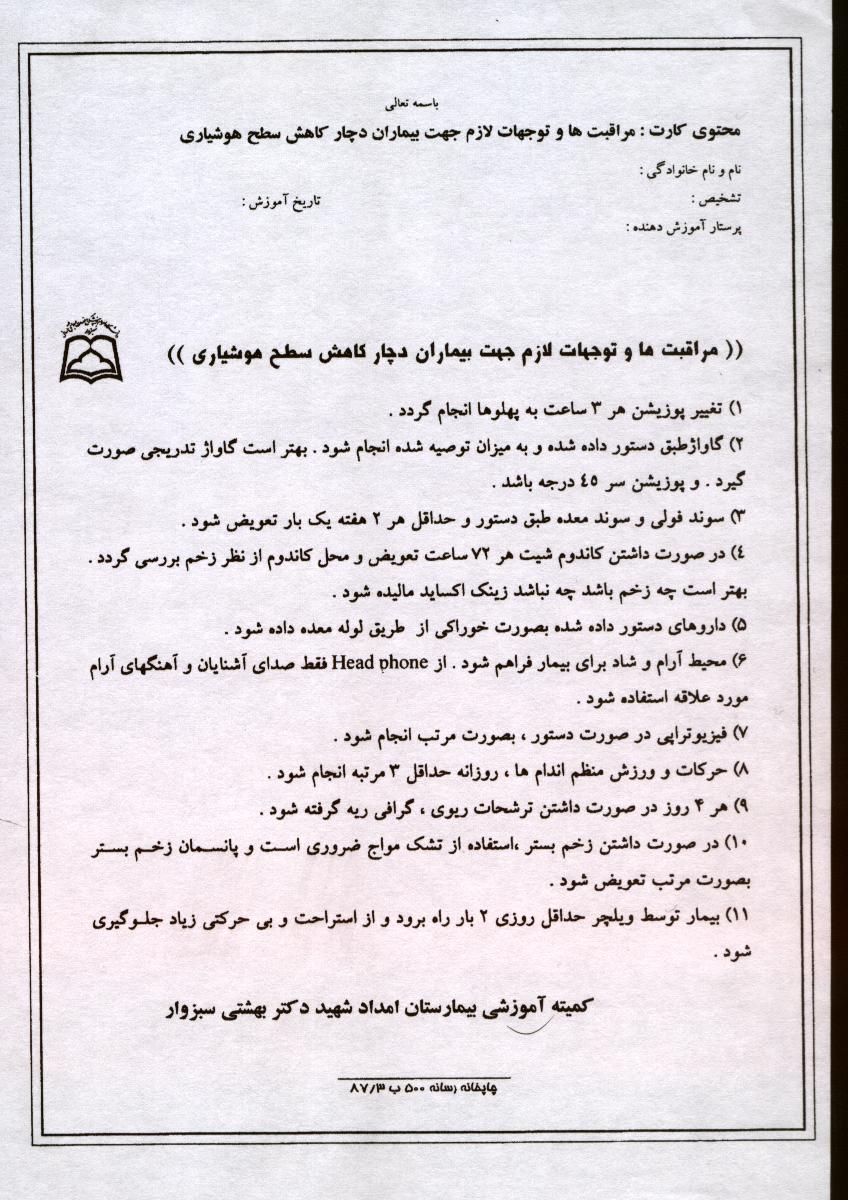 باسمه تعالی
محتوی کارت : مراقبت ها و توجهات لازم جهت بیماران دچار کاهش سطح هوشیاری
نام و نام خانوادگی :
تشخیص :
تاریخ آموزش :
پرستار آموزش دهنده :
(( مراقبت ها و توجهات لازم جهت بیماران دچار کاهش سطح هوشیاری ))
۱) تغییر پوزیشن هر ۳ ساعت به پهلوها انجام گردد .
۲) گاواژطبق دستور داده شده و به میزان توصیه شده انجام شود . بهتر است گاواژ تدریجی صورت
گیرد . و پوزیشن سر ٤٥ درجه باشد .
۳) سوند فولی و سوند معده طبق دستور و حداقل هر ۲ هفته یک بار تعویض شود .
٤) در صورت داشتن کاندوم شیت هر ۷۲ ساعت تعویض و محل کاندوم از نظر زخم بررسی گردد .
بهتر است چه زخم باشد چه نباشد زینک اکساید مالیده شود .
۵) داروهای دستور داده شده بصورت خوراکی از طریق لوله معده داده شود .
۶) محیط آرام و شاد برای بیمار فراهم شود . از Head phone فقط صدای آشنایان و آهنگهای آرام
مورد علاقه استفاده شود .
۷) فیزیوتراپی در صورت دستور ، بصورت مرتب انجام شود .
۸) حرکات و ورزش منظم اندام ها ، روزانه حداقل ۳ مرتبه انجام شود .
۹) هر ۴ روز در صورت داشتن ترشحات ریوی ، گرافی ریه گرفته شود .
۱۰) در صورت داشتن زخم بستر ،استفاده از تشک مواج ضروری است و پانسمان زخم بستر
بصورت مرتب تعویض شود .
۱۱) بیمار توسط ویلچر حداقل روزی ۲ بار راه برود و از استراحت و بی حرکتی زیاد جلوگیری
شود .
کمیته آموزشی بیمارستان امداد شهید دکتر بهشتی سبزوار
چاپخانه رسانه ۵۰۰ ب ۸۷/۳